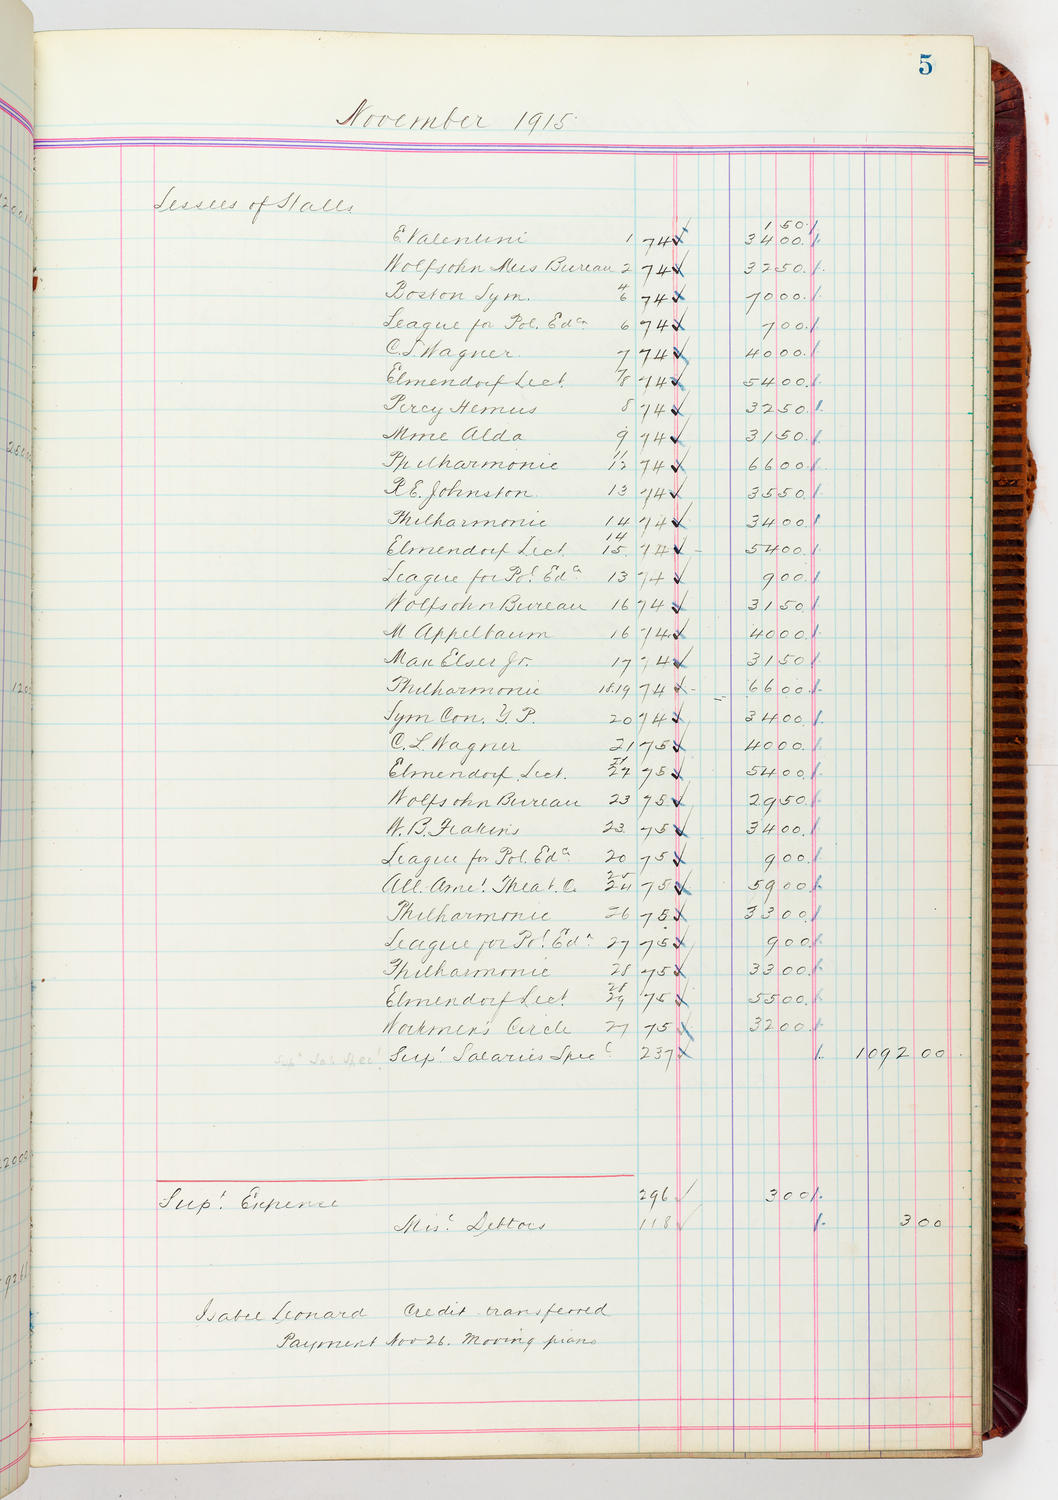 5
November 1915
Lessees of Halls
150
E Valentini 1 74 3400
Wolfsohn Mus Bureau 2 74 3250
Boston Sym. 4 6 74 7000
League for Pol. Edn 6 74 700
C. L. Wagner 7 74 4000
Elmendorf Lect. 7/8 74 5400
Percy Hemus 8 74 3250
Mme Alda 9 74 3150
Philharmonic 11 12 74 6600
R. E. Johnston 13 74 3550
Philharmonic 14 74 3400
Elmendorf Lect. 14 15 74 5400
League for Pol Edn 13 74 900
Wolfsohn Bureau 16 74 3150
M Appelbaum 16 74 4000
Max Elser Jr. 17 74 3150
Philharmonic 18.19 74 6600
Sym Con. Y. P. 20 74 3400
C. L. Wagner 21 75 4000
Elmendorf Lect. 21 75 5400
Wolfsohn Bureau 23 75 2950
W. B. Feakins 23 75 3400
League for Pol. Edn 20 75 900
All. Ame. Theat. C. 25 24 75 5900
Philharmonic 26 75 3300
League for Pol Edn 27 75 900
Philharmonic 28 75 3300
Elmendorf Lect 28 29 75 5500
Workmen's Circle 27 75 3200
Sup! Salaries Spec! 237 1092 00
Sup! Expense 296 300
Misc Debtors 118 300
Isabel Leonard Credit transferred
Payment Nov 26. Moving piano